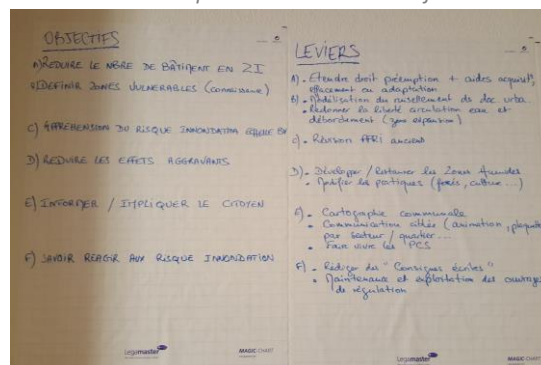 OBJECTIFS
A) REDUIRE LE NBRE DE BÂTIMENT EN ZI
B) DEFINIR ZONES VULNERABLES (connaissance)
C) APPREHENSION DU RISQUE INNONDATION
D) REDUIRE LES EFFETS AGGRAVANTS
E) INFORMER / IMPLIQUER LE CITOYEN
F) SAVOIR REAGIR AUX RISQUE INNONDATION
Legamaster
MAGIC-CHART
LEVIERS
A) - Etendre droit préemption + aides
effacement ou adaptation
B) - Modélisation du ruissellement ds doc urba.
- Redonner la liberté circulation eau et
débordement (zone expansion)
C) - Révision PPRI anciens
D) - Développer / Restaurer les Zones Humides
- Modifier les pratiques (forêt, culture...)
E) - Cartographie communale
- Communication ciblée (animation, plaquette
par secteur / quartier...
- Faire vivre les PCS
F) - Rédiger des "Consignes écrites"
- Maintenance et exploitation des ouvrages
de régulation
Legamaster
MAGIC-CHART